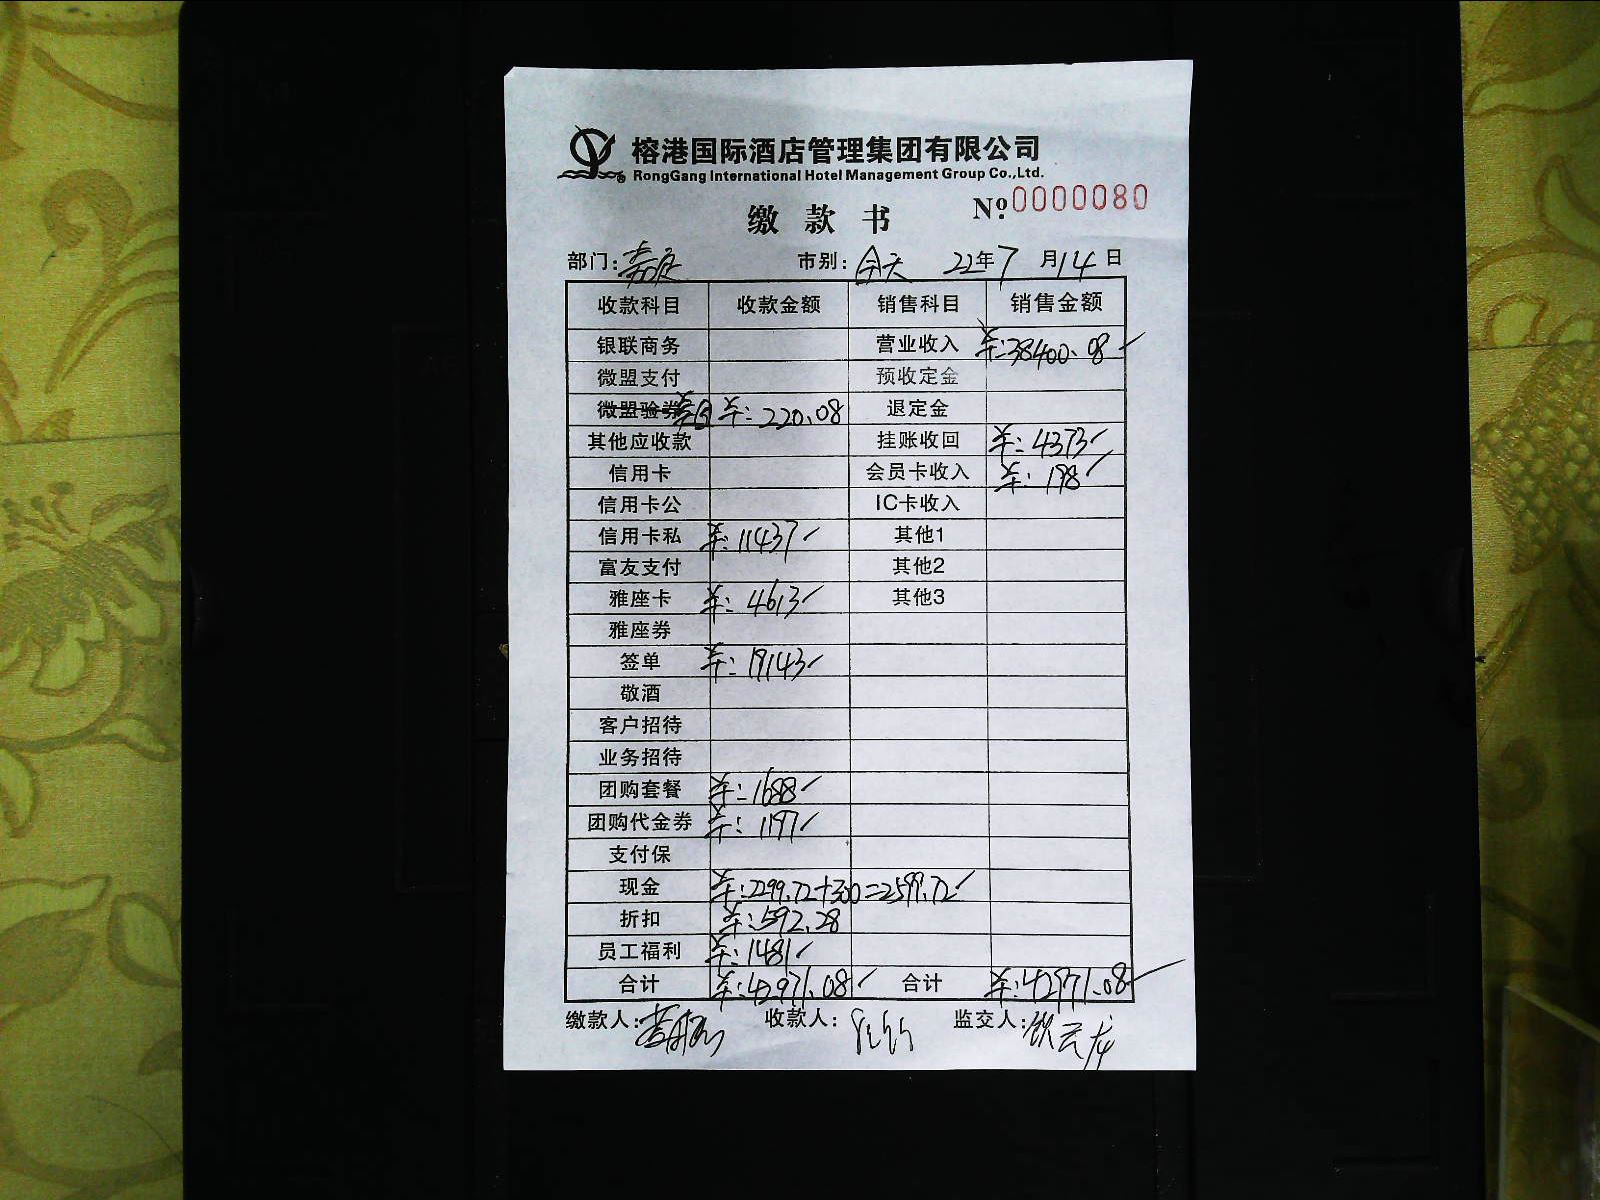 榕港国际酒店管理集团有限公司
RongGang International Hotel Management Group Co.,Ltd.
缴款书 №0000080
部门: 市别:全天 22年7月14日
收款科目 收款金额 销售科目 销售金额
银联商务 营业收入 ¥:38400.08
微盟支付 预收定金
微盟验券 ¥:220.08 退定金
其他应收款 挂账收回 ¥:4373
信用卡 会员卡收入 ¥:198
信用卡公 IC卡收入
信用卡私 ¥:11437 其他1
富友支付 其他2
雅座卡 ¥:4613 其他3
雅座券
签单 ¥:19143
敬酒
客户招待
业务招待
团购套餐 ¥:1688
团购代金券 ¥:1197
支付保
现金 ¥:2299.72+300=2599.72
折扣 ¥:592.28
员工福利 ¥:1481
合计 ¥:42971.08 合计 ¥:42971.08
缴款人: 收款人: 监交人: